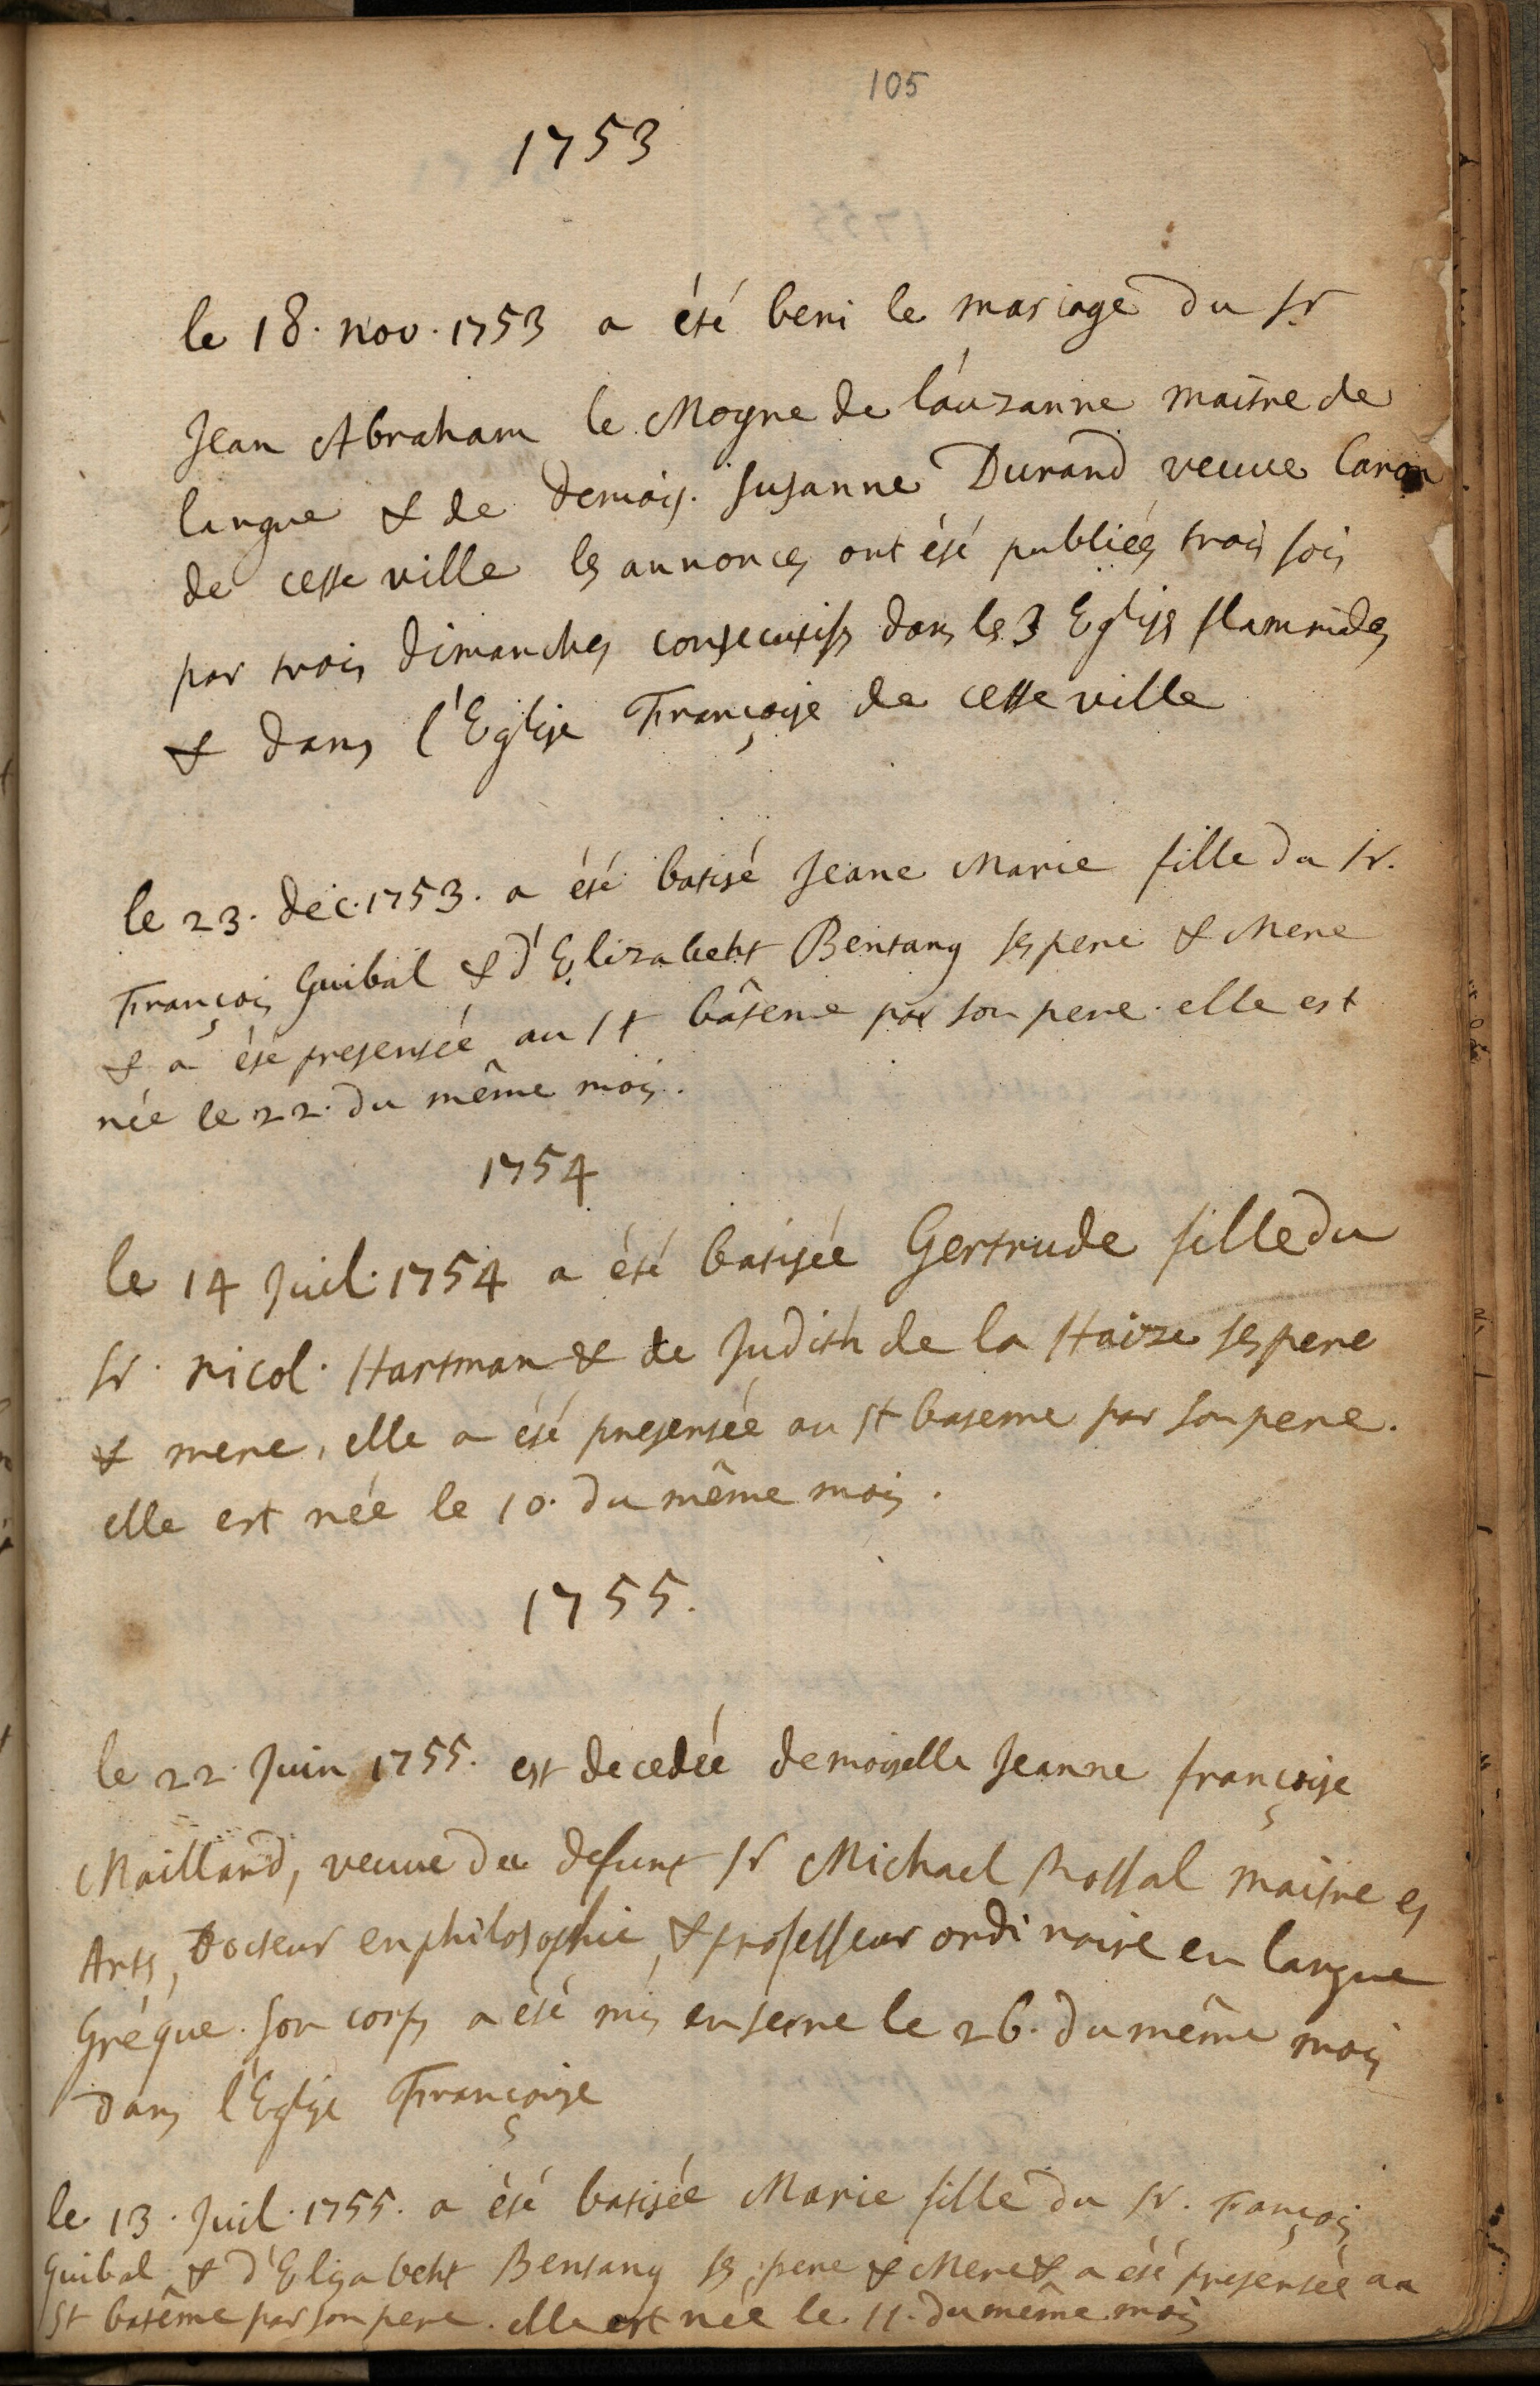 105
1753
le 18. nov. 1753 a été beni le mariage du Sr
Jean Abraham le Moyne de lauzanne maitre de
langue & de demois. Susanne Durand veuve Caron
de cette ville les annonces ont été publiées trois fois
par trois dimanches consecutifs dans les 3 Eglises flammides
& dans l'Eglise Françoise de cette ville
le 23. dec. 1753. a été batisé Jeane Marie fille du Sr.
François Guibal & d'Elizabeht Bentang ses pere & Mere
& a été presentée au St bâteme par son pere. elle est
née le 22. du même mois.
1754
le 14 Juil. 1754 a été batisée Gertrude fille du
Sr. Nicol. Hartman & de Judith de la Haize ses pere
& mere, elle a été presentée au St bateme par son pere.
elle est née le 10. du même mois.
1755.
le 22. Juin 1755. est decedée demoiselle Jeanne françoise
Maillard, veuve du defunt Sr Michael Rossal maitre es
Arts, Docteur en philosophie, & professeur ordinaire en langue
Gréque. son corps a été mis en terre le 26. du même mois
dans l'Eglise Françoise
le 13. Juil. 1755. a été batisée Marie fille du Sr. Fançois
Guibal & d'Elisabeht Bentang ses pere & Mere & a été presentée au
St batême par son pere. elle est née le 11. du même mois